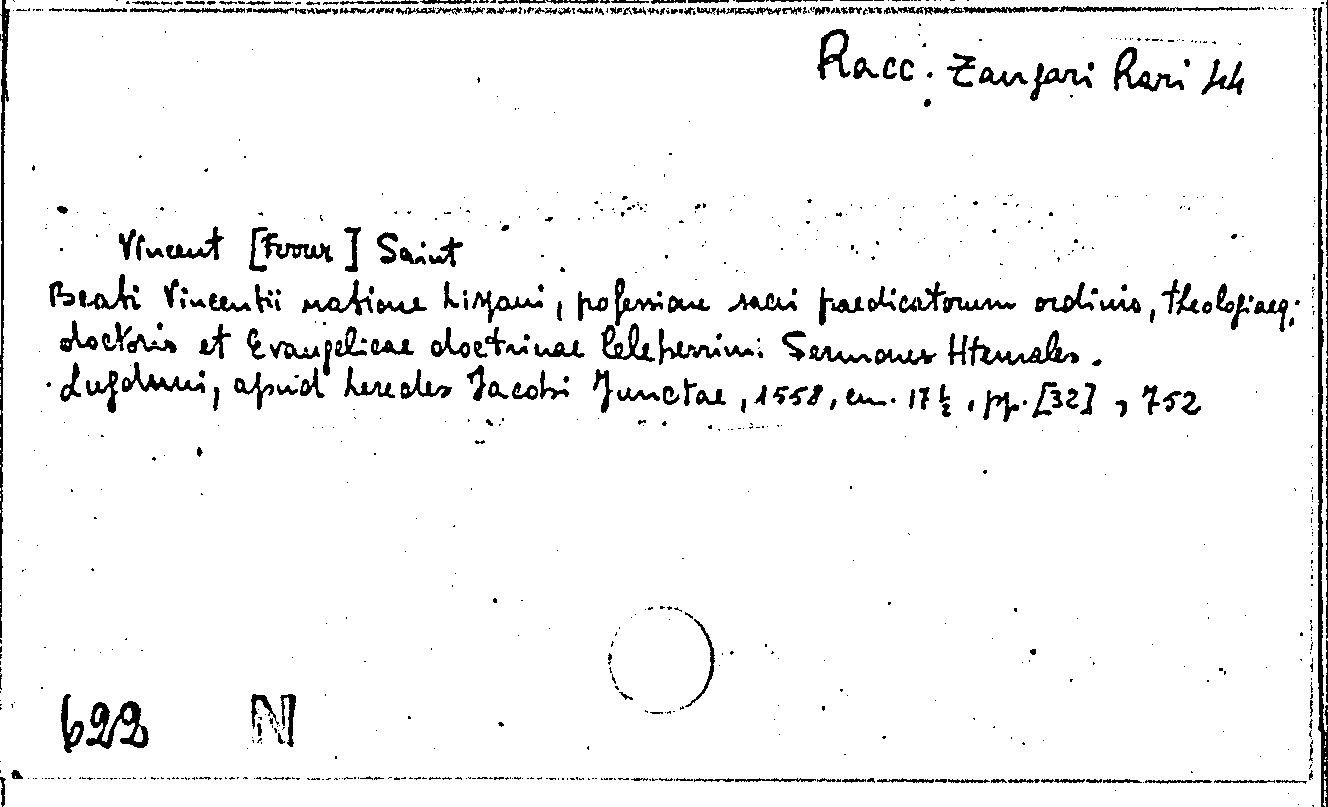 Racc. Zangari Rari 44
Vincent [Ferrer] Saint
Beati Vincentii natione hispani, pofessione sacri praedicatorum ordinis, theologiaeq;
doctoris et Evangelicae doctrinae celeberrimi Sermones Hiemales.
Lugduni, apud heredes Jacobi Junctae, 1558, cm. 17 ½, pp. [32], 752
622 N